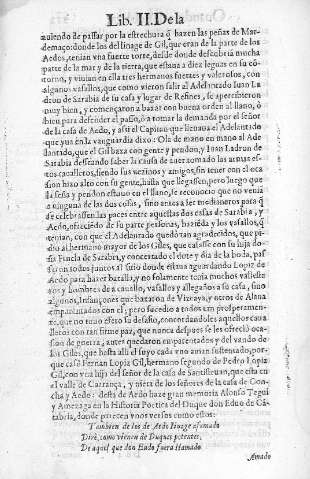 Lib. II. De la
uiendo de passar por la estrechura q̃ hazen las peñas de Mar-
demaço: donde los del linage de Gil, que eran de la parte de los
Aedos, tenian vna fuerte torre, desde donde descobria mucha
parte de la mar y de la tierra, que estaua a diez leguas en su cõ
torno, y viuian en ella tres hermanos fuertes y valerosos, con
algunos vassallos, que como vieron salir al Adelantado Iuan La
dron de Sarabia de su casa y lugar de Refines, se apercibieron
muy bien, y començaron a baxar con buena orden al llano, ò
bien para defender el passo, ò a tomar la demanda por el señor
de la casa de Aedo, y assi el Capitan que lleuaua el Adelantado
que yua en la vanguardia dixo: Ola de mano en mano al Ade
llantado, que el Gil baxa con gente y pendon, y Iuan Ladron de
Sarabia desseando saber la causa de auer tomado las armas es-
tos caualleros, siendo sus vezinos y amigos, sin tener con el oca
sion hizo alto con su gente, hasta que llegassen, pero luego que
la seña y pendon estuuo en el llano, se reconocio que no venia
a ninguna de las dos cosas, sino antes a ser medianeros para q̃
se celebrassen las pazes entre aquestas dos casas de Sarabia, y
Aedo, ofreciendo de su parte personas, hazienda y los vassallos, q̃
tenian, con que el Adelantado quedò tan agradecido, que pi-
dio al hermano mayor de los Giles, que casasse con su hija do-
ña Finela de Sarabia, y concertado el dote y dia de la boda, pas
saron todos juntos al sitio donde estaua aguardando Lopez de
Aedo para hazer batalla, y no solamente tenia muchos valleste
ros y hombres de a cauallo, vassallos y allegados a su casa, sino
algunos, Infançones que baxaron de Vizcaya, y otros de Alaua
emparentados con el, pero sucedio a todos tan prosperamen-
te, que no tuuo efeto su desafio, concertandoles aquellos caua
lleros con tan firme paz, que nunca despues se les ofreciò oca-
sion de guerra, antes quedaron emparentados y del vando de
los Giles, que hasta alli el suyo cada vno auian sustentado, por-
que casò Fernan Lopez Gil, hermano segundo de Pedro Lopez
Gil, con vna hija del señor de la casa de Santisteuan, que esta en
el valle de Carrança, y nieta de los señores de la casa de Con-
cha y Aedo: desta de Aedo haze gran memoria Alonso Tegui
y Amezaga en la Historia Poetica del Duque don Eudo de Cã
tabria, donde parecen vnos versos como estos:
Tambien de los de Aedo linage afamado
Dirè, como vienen de Duques potentes,
De aquel que don Eudo fuera llamado
Amado